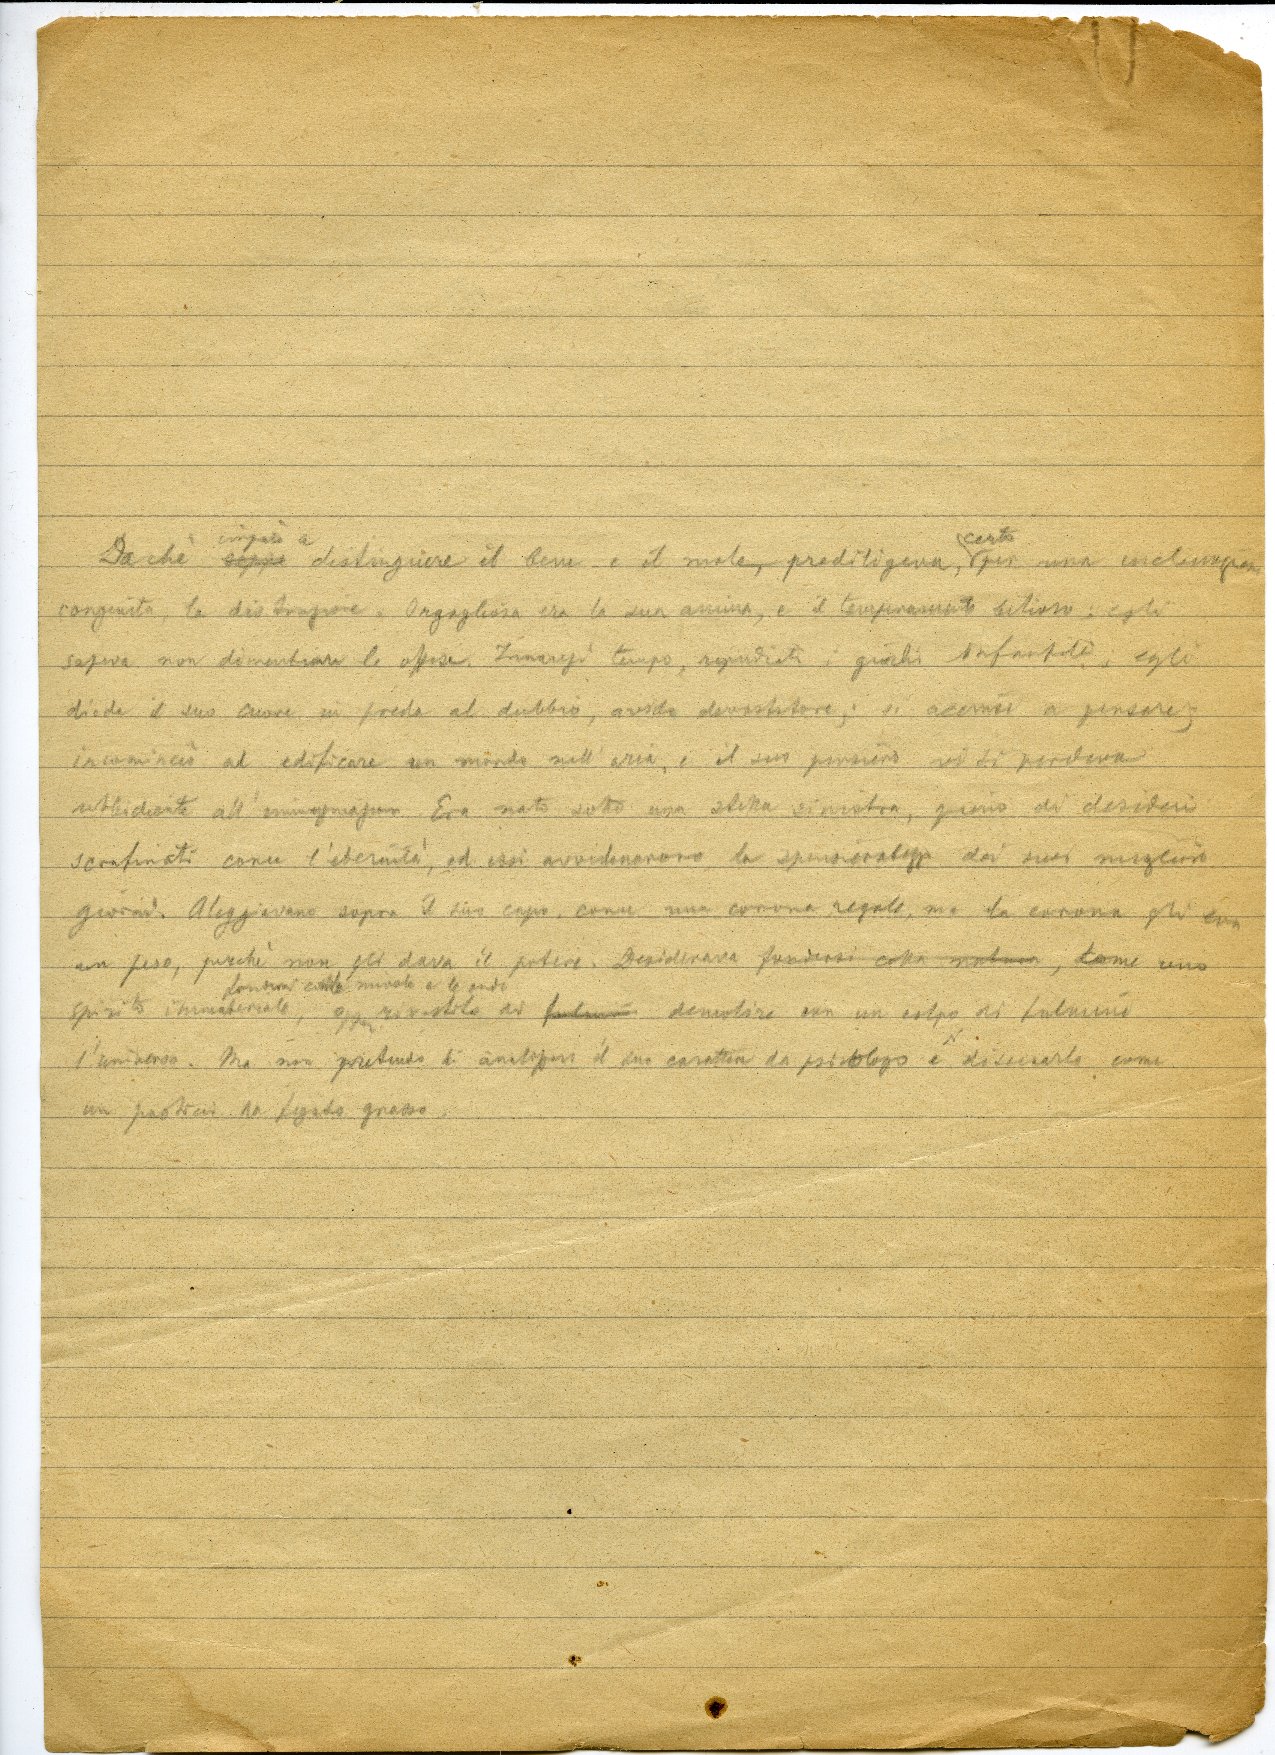 imparò a certo
Da che seppe distinguere il bene e il male, prediligeva, per una inclinazione
congenita, la distruzione. Orgogliosa era la sua anima, e il temperamento bilioso: egli
sapeva non dimenticare le offese. Innanzi tempo, ripudiati i giochi infantili, egli
diede il suo cuore in preda al dubbio, avido devastatore; si accanì a pensare;
incominciò ad edificare un mondo nell'aria, e il suo pensiero vi si perdeva
ubbidiente all'immaginazione. Era nato sotto una stella sinistra, pieno di desideri
sconfinati come l'eternità, ed essi avvelenarono la spensieratezza dei suoi migliori
giorni. Aleggiavano sopra il suo capo, come una corona regale, ma la corona gli era
un peso, perchè non gli dava il potere. Desiderava fondersi colla natura, come uno
fondersi colle nuvole e le onde
spirito immateriale, rivestito di fulmini demolire con un colpo di fulmine
l'universo. Ma non pretendo di analizzare il suo carattere da psicologo e disseccarlo come
un pasticcio da fegato grasso.